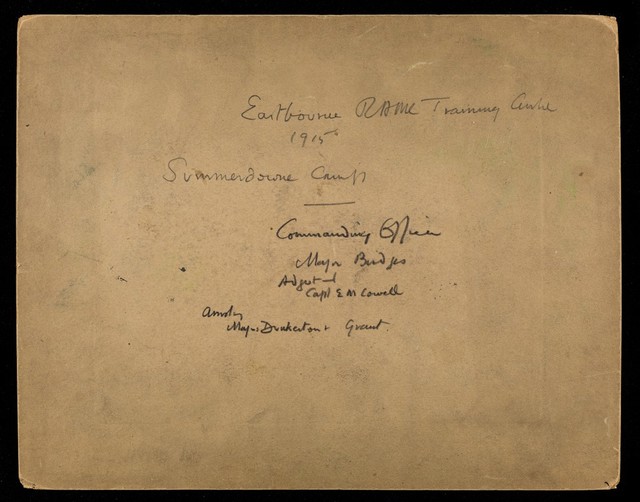 Eastbourne RAMC Training Centre
1915
Summerdowne Camp
Commanding Officer
Major Bridges
Adjut
Capt E M Cowell
Major Drukerton + Grant.